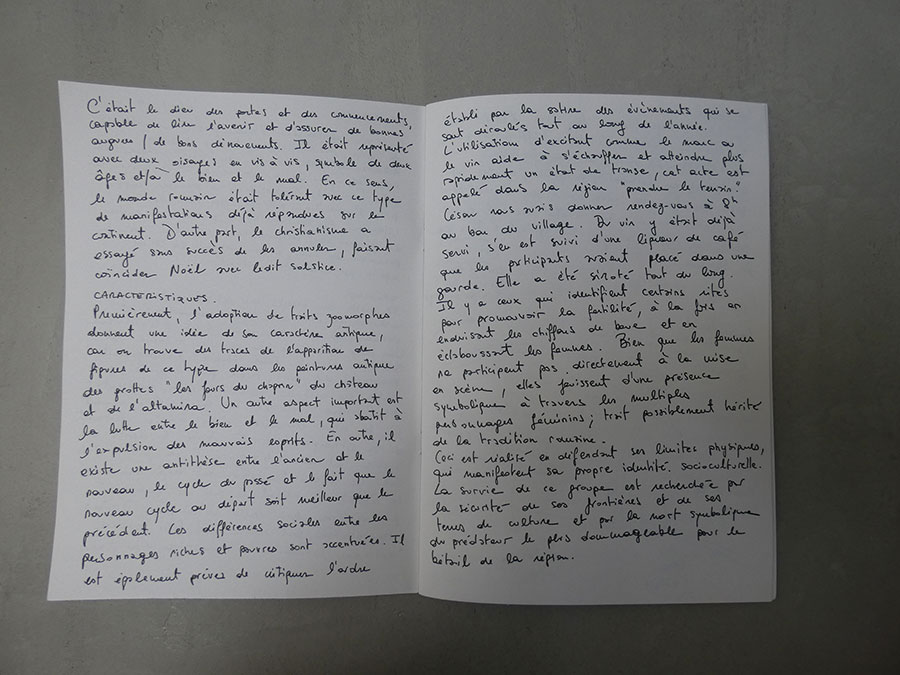 C'était le dieu des portes et des commencements,
capable de lire l'avenir et d'assurer de bonnes
augures / de bons dénouements. Il était représenté
avec deux visages en vis à vis, symbole de deux
âges et/à le bien et le mal. En ce sens,
le monde romain était tolérant avec ce type
de manifestations déjà répandues sur le
continent. D'autre part, le christianisme a
essayé sans succès de les annuler, faisant
coïncider Noël avec ledit solstice.
CARACTERISTIQUES.
Premièrement, l'adoption de traits zoomorphes
donnent une idée de son caractère antique,
car on trouve des traces de l'apparition de
figures de ce type dans les peintures antiques
des grottes "les fours du chapron" du château
et de l'altamira. Un autre aspect important est
la lutte entre le bien et le mal, qui aboutit à
l'expulsion des mauvais esprits. En outre, il
existe une antithèse entre l'ancien et le
nouveau, le cycle du passé et le fait que le
nouveau cycle au départ soit meilleur que le
précédent. Les différences sociales entre les
personnages riches et pauvres sont accentuées. Il
est également prévu de critiquer l'ordre
établi par la satire des évènements qui se
sont déroulés tout au long de l'année.
L'utilisation d'excitant comme le marc ou
le vin aide à s'échauffer et atteindre plus
rapidement un état de transe, cet acte est
appelé dans la région "prendre le
César nous avais donner rendez-vous à 8h
au bar du village. Du vin y était déjà
servi, s'en est suivi d'une liqueur de café
que les participants avaient placé dans une
gourde. Elle a été siroté tout du long.
Il y a ceux qui identifient certains rites
pour promouvoir la fertilité, à la fois en
enduisant les chiffons de boue et en
éclaboussant les femmes. Bien que les femmes
ne participent pas directement à la mise
en scène, elles jouissent d'une présence
symbolique à travers les multiples
personnages féminins; trait possiblement hérité
de la tradition romaine.
Ceci est réalité en défendant ses limites physiques,
qui manifestent sa propre identité socioculturelle.
La survie de ce groupe est recherchée par
la sécurité de ses frontières et de ses
terres de culture et par la mort symbolique
du prédateur le plus dommageable pour le
bétail de la région.